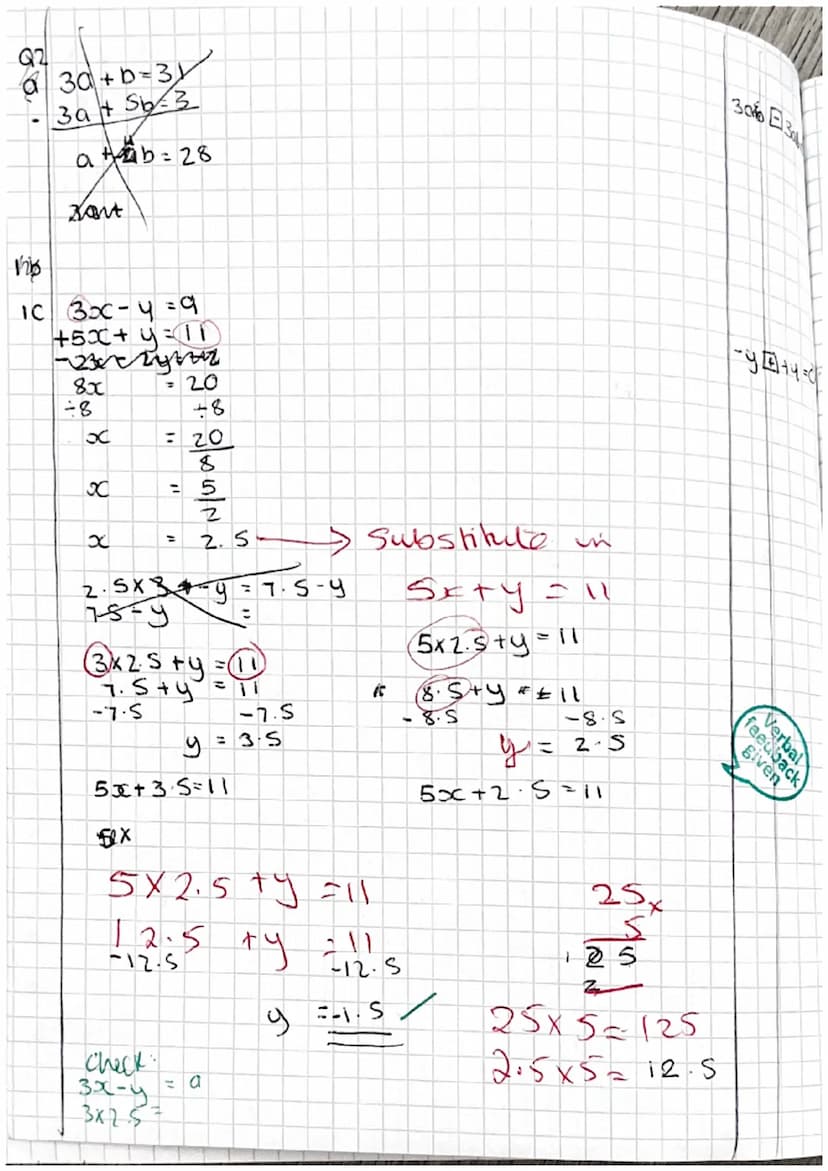 Q2
a 3a + b = 31
- 3a + 5b = 3
a + b = 28
1C 3x - y = 9
+5x + y = 11
8x = 20
÷8 ÷8
x = 20/8
x = 5/2
x = 2.5 → Substitute in
2.5 x 3 - y = 7.5 - y
7.5 - y =
3 x 2.5 + y = 11
7.5 + y = 11
-7.5 -7.5
y = 3.5
5x + 3.5 = 11
5x + y = 11
5 x 2.5 + y = 11
8.5 + y = 11
-8.5 -8.5
y = 2.5
5x + 2.5 = 11
5 x 2.5 + y = 11
12.5 + y = 11
-12.5 -12.5
y = -1.5 ✓
25 x
5
125
2
25 x 5 = 125
2.5 x 5 = 12.5
Check:
3x - y = 9
3 x 2.5 =
-y + +y = 0
Verbal
feedback
given